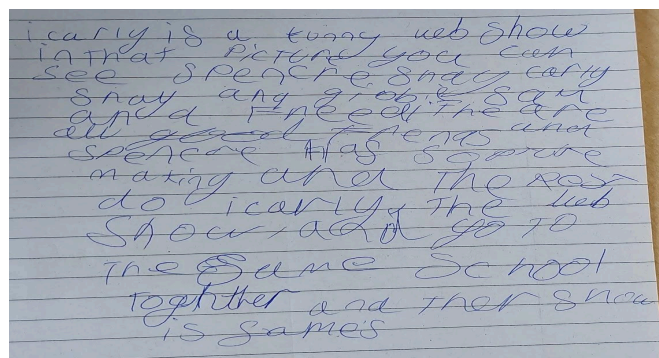 icarly is a funny web show
in that picture you can
see spencre shay carly
shay and gibbie sam
and Freed The are
all friends and
spencre Has
making and The rest
do icarly, The web
show, and go to
The Same School
Togehther and ther show
is fames